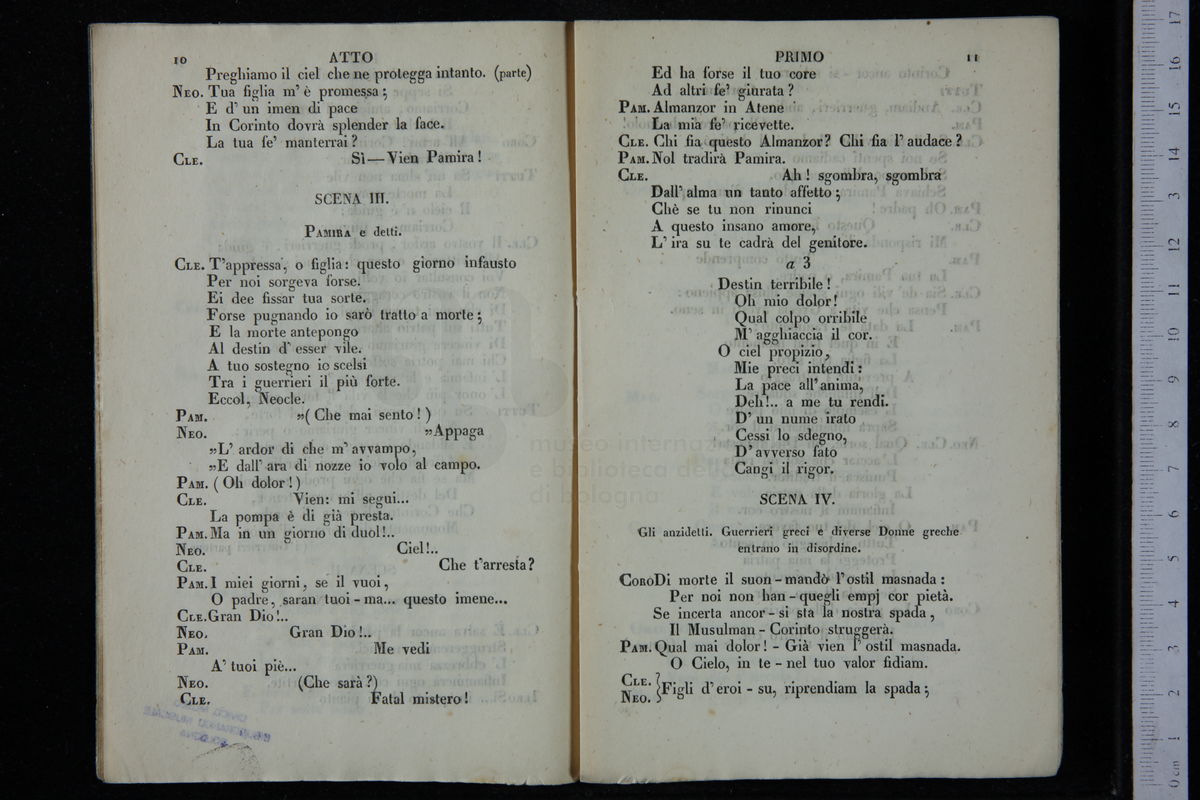 10 ATTO
Preghiamo il ciel che ne protegga intanto. (parte)
NEO. Tua figlia m' è promessa;
E d' un imen di pace
In Corinto dovrà splender la face.
La tua fe' manterrai?
CLE. Sì—Vien Pamira!
SCENA III.
PAMIRA e detti.
CLE. T'appressa, o figlia: questo giorno infausto
Per noi sorgeva forse.
Ei dee fissar tua sorte.
Forse pugnando io sarò tratto a morte;
E la morte antepongo
Al destin d' esser vile.
A tuo sostegno io scelsi
Tra i guerrieri il più forte.
Eccol, Neocle.
PAM. »(Che mai sento!)
NEO. »Appaga
»L' ardor di che m' avvampo,
»E dall' ara di nozze io volo al campo.
PAM. (Oh dolor!)
CLE. Vien: mi segui...
La pompa è di già presta.
PAM. Ma in un giorno di duol!..
NEO. Ciel!..
CLE. Che t'arresta?
PAM. I miei giorni, se il vuoi,
O padre, saran tuoi - ma... questo imene...
CLE. Gran Dio!..
NEO. Gran Dio!..
PAM. Me vedi
A' tuoi piè...
NEO. (Che sarà?)
CLE. Fatal mistero!
PRIMO 11
Ed ha forse il tuo core
Ad altri fe' giurata?
PAM. Almanzor in Atene
La mia fe' ricevette.
CLE. Chi fia questo Almanzor? Chi fia l' audace?
PAM. Nol tradirà Pamira.
CLE. Ah! sgombra, sgombra
Dall' alma un tanto affetto;
Chè se tu non rinunci
A questo insano amore,
L' ira su te cadrà del genitore.
a 3
Destin terribile!
Oh mio dolor!
Qual colpo orribile
M' agghiaccia il cor.
O ciel propizio,
Mie preci intendi:
La pace all' anima,
Deh!.. a me tu rendi.
D' un nume irato
Cessi lo sdegno,
D' avverso fato
Cangi il rigor.
SCENA IV.
Gli anzidetti. Guerrieri greci e diverse Donne greche
entrano in disordine.
CORO Di morte il suon - mandò l' ostil masnada:
Per noi non han - quegli empj cor pietà.
Se incerta ancor - si sta la nostra spada,
Il Musulman - Corinto struggerà.
PAM. Qual mai dolor! - Già vien l' ostil masnada.
O Cielo, in te - nel tuo valor fidiam.
CLE.
NEO. } Figli d' eroi - su, riprendiam la spada;
museo internaz
e biblioteca del
di bologna